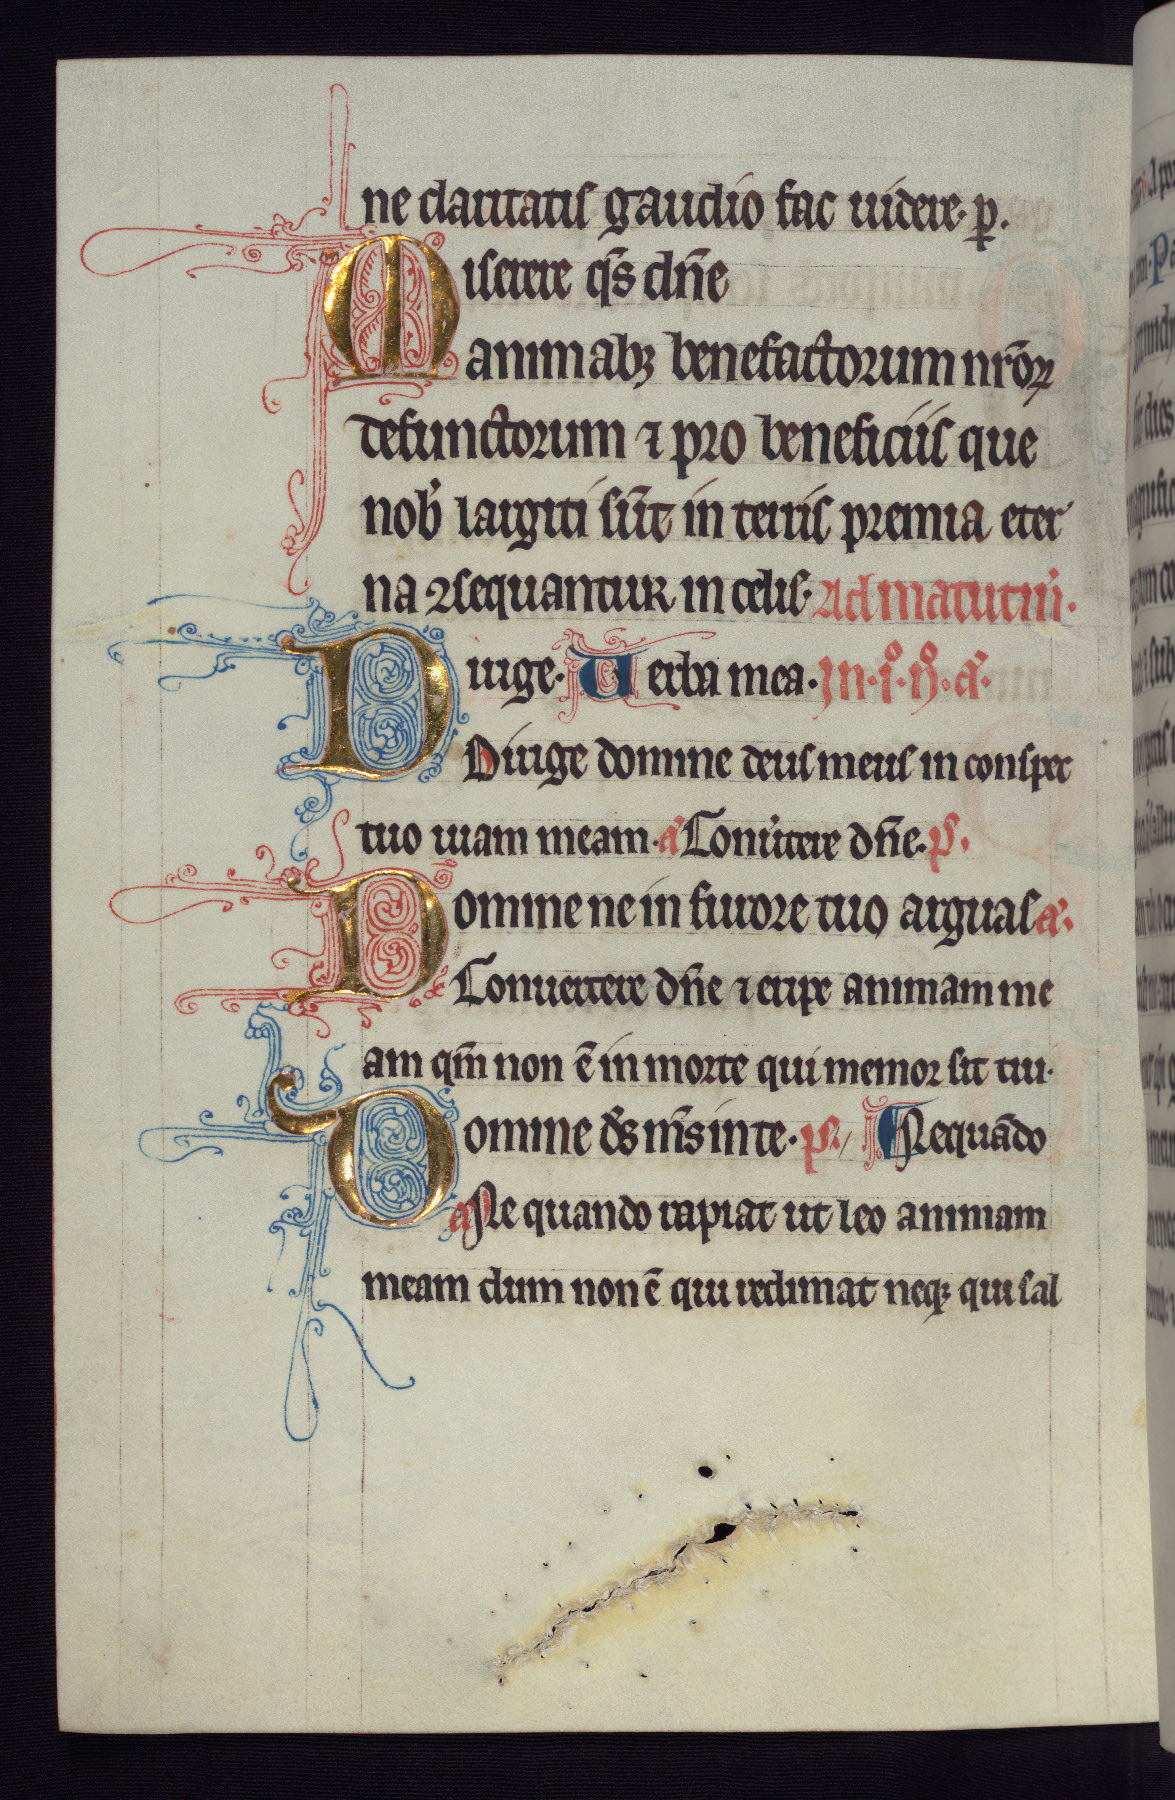 ne claritatis gaudio fac uidere. ꝑ.
Miserere q̄s dn̄e
animabꝫ benefactorum nr̄oꝝ
defunctorum ⁊ pro beneficiis que
nob̾ largiti sūt in terris premia eter
na ꝯsequantur in celis. Ad matutin̄.
Dirige. Uerba mea. In. i̊. n̊. a̾.
Dirige domine deus meus in conspec
tuo uiam meam. a̾ Conu̾tere dn̄e. p̾s.
Domine ne in furore tuo arguas a̾.
Conuertere dn̄e ⁊ eripe animam me
am qm̄ non ē in morte qui memor sit tui.
Domine ds̄ ms̄ in te. ps̾ Nequādo
a̾ Ne quando rapiat ut leo animam
meam dum non ē qui redimat neqꝫ qui sal